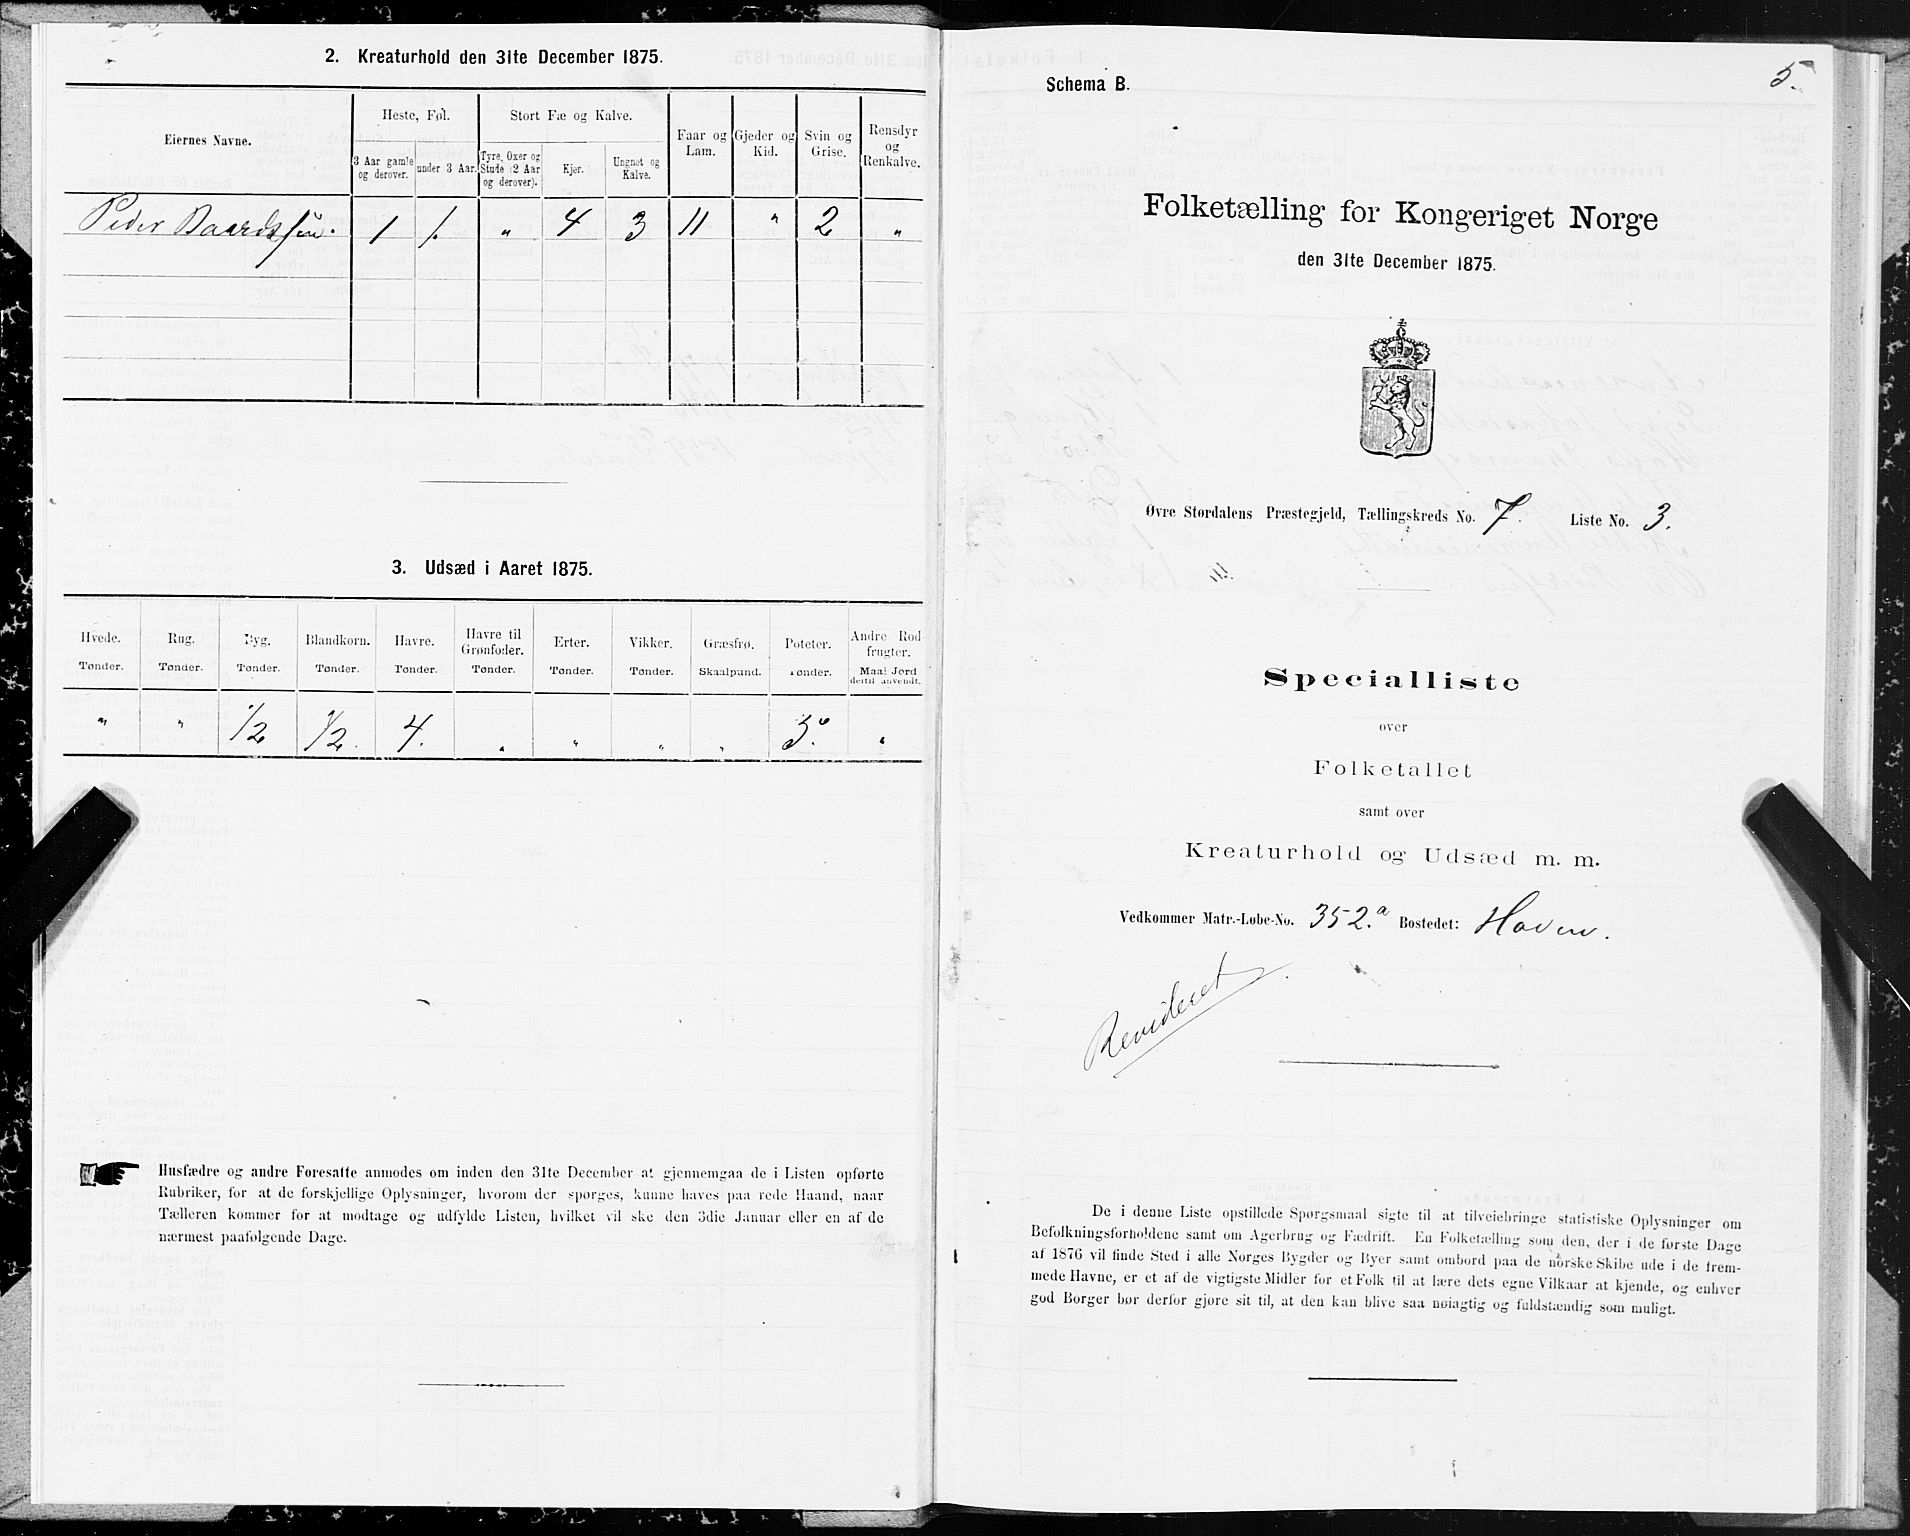 2. Kreaturhold den 31te December 1875.
Eiernes Navne.
Heste, Føl.
Stort Fæ og Kalve.
Faar og Lam.
Gjeder og Kid.
Svin og Grise.
Rensdyr og Renkalve.
3 Aar gamle og derover.
under 3 Aar.
Tyre, Oxer og Stude (2 Aar og derover).
Kjer.
Ungnøt og Kalve.
Peder Baardssøn. 1 1. " 4 3 11 " 2 "
3. Udsæd i Aaret 1875.
Hvede. Rug. Byg. Blandkorn. Havre. Havre til Grønfoder. Erter. Vikker. Græsfrø. Poteter. Andre Rodfrugter.
Tønder. Tønder. Tønder. Tønder. Tønder. Tønder. Tønder. Tønder. Skaalpund. Tønder. Maal Jord dertil anvendt.
" " 1/2 1/2. 4. " " " " 3. "
Husfædre og andre Foresatte anmodes om inden den 31te December at gjennemgaa de i Listen opførte
Rubriker, for at de forskjellige Oplysninger, hvorom der spørges, kunne haves paa rede Haand, naar
Tælleren kommer for at modtage og udfylde Listen, hvilket vil ske den 3die Januar eller en af de
nærmest paafølgende Dage.
5.
Schema B.
Folketælling for Kongeriget Norge
den 31te December 1875.
Øvre Stordalens Præstegjeld, Tællingskreds No. 7. Liste No. 3.
Specialliste
over
Folketallet
samt over
Kreaturhold og Udsæd m. m.
Vedkommer Matr.-Løbe-No. 352.a Bostedet: Haven.
Revideret
De i denne Liste opstillede Spørgsmaal sigte til at tilveiebringe statistiske Oplysninger om
Befolkningsforholdene samt om Agerbrug og Fædrift. En Folketælling som den, der i de første Dage
af 1876 vil finde Sted i alle Norges Bygder og Byer samt ombord paa de norske Skibe ude i de frem-
mede Havne, er et af de vigtigste Midler for et Folk til at lære dets egne Vilkaar at kjende, og enhver
god Borger bør derfor gjøre sit til, at den kan blive saa nøiagtig og fuldstændig som muligt.